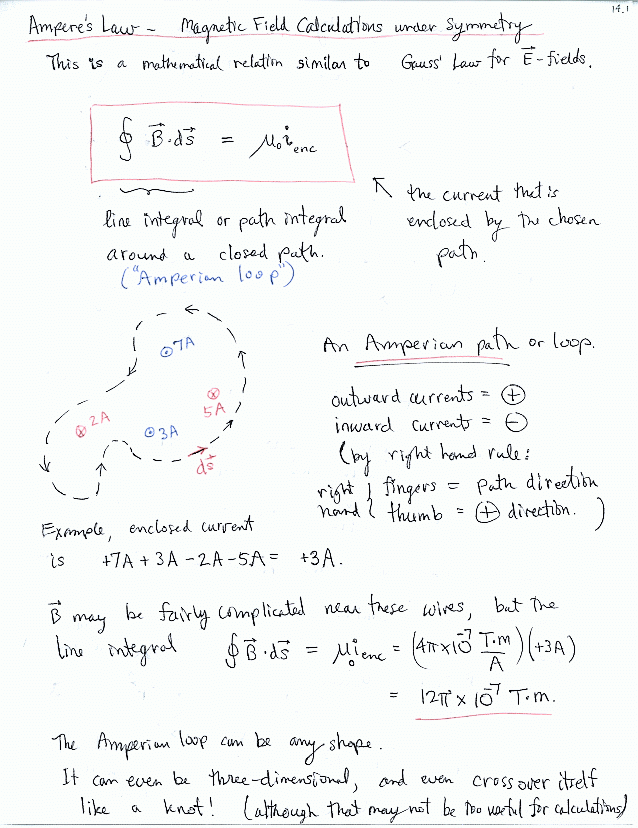 14.1
Ampere's Law – Magnetic Field Calculations under Symmetry
This is a mathematical relation similar to Gauss' Law for E⃗-fields.
∮ B⃗·ds⃗ = μ₀i_enc
line integral or path integral
around a closed path.
("Amperian loop")
the current that is
enclosed by the chosen
path.
⊙7A
⊗ 5A
⊗2A
⊙3A
ds⃗
An Amperian path or loop.
outward currents = ⊕
inward currents = ⊖
(by right hand rule:
right } fingers = path direction
hand { thumb = ⊕ direction. )
Example, enclosed current
is +7A + 3A - 2A - 5A = +3A.
B⃗ may be fairly complicated near these wires, but the
line integral ∮ B⃗·ds⃗ = μ₀i_enc = (4π×10⁻⁷ T·m/A)(+3A)
= 12π × 10⁻⁷ T·m.
The Amperian loop can be any shape.
It can even be three-dimensional, and even cross over itself
like a knot! (although that may not be too useful for calculations)